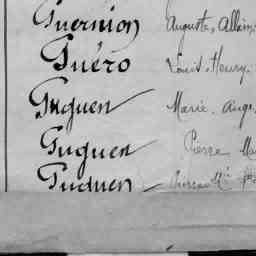 Guernion Auguste, Allain
Guéro Louis, Henry
Guguen Marie, Ange
Guguen Pierre